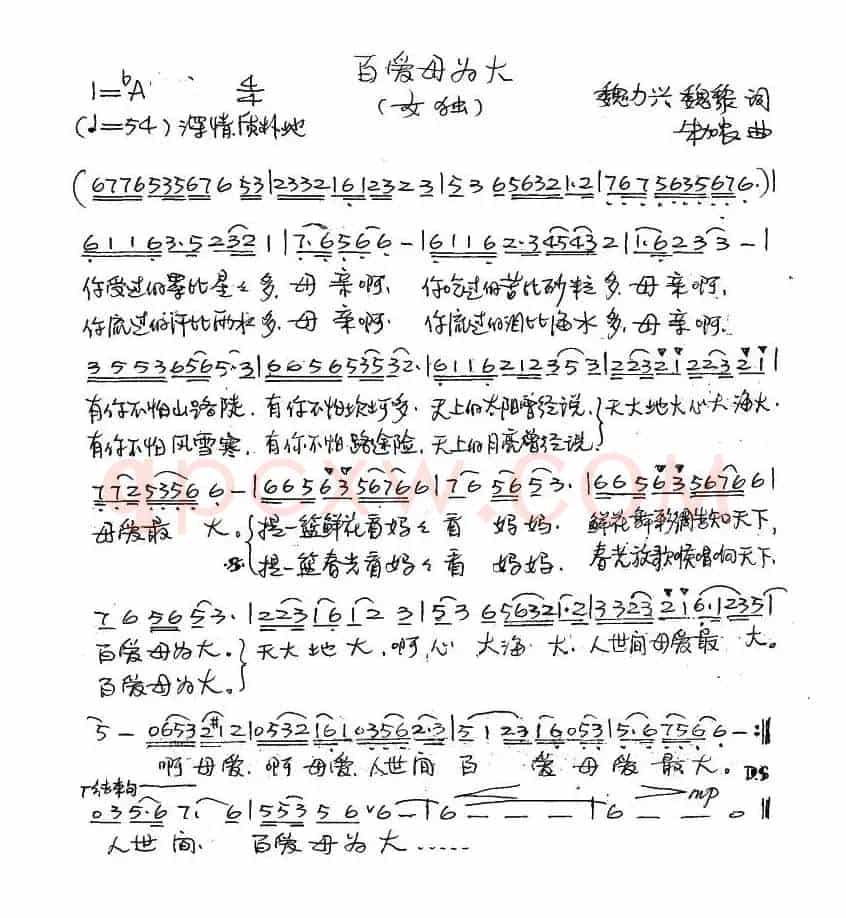 百爱母为大
1=ᵇA 4/4 (女独) 魏力兴 魏黎 词
(♩=54) 深情 质朴地 曲
(6776535676 53|2332161232 3|53 656321·2|767 5635676·)|
61163·52321|7·6566-|61162·345432|1·6233-|
你受过的累比星星多，母亲啊， 你吃过的苦比砂粒多，母亲啊，
你流过的汗比雨粒多，母亲啊， 你流过的泪比海水多，母亲啊，
35536565·3|66565353 2·|61162123 53|22321223 21|
有你不怕山路陡，有你不怕坎坷多，天上的太阳曾经说，天大地大心大海大，
有你不怕风雪寒，有你不怕路途险，天上的月亮曾经说，
77253566-|6656356766|765653·|6656356766|
母爱最 大。提一篮鲜花看妈妈看 妈妈， 鲜花舞彩绸告知天下，
提一篮春光看妈妈看 妈妈， 春光放歌喉唱响天下，
765653·|223161 2 3|53 656321·2|3323216·1235|
百爱母为大。天大地大，啊，心 大海 大，人世间母爱最 大。
百爱母为大。
5-06532#12|053216103562·3|5123160 53|5·67566-:‖
啊母爱，啊母爱，人世间百 爱母爱最大。 D.S
结束句
035·67·6|55356ˇ6-|6---|6--0‖ mp
人世间， 百爱母为大……
qpcxw.com